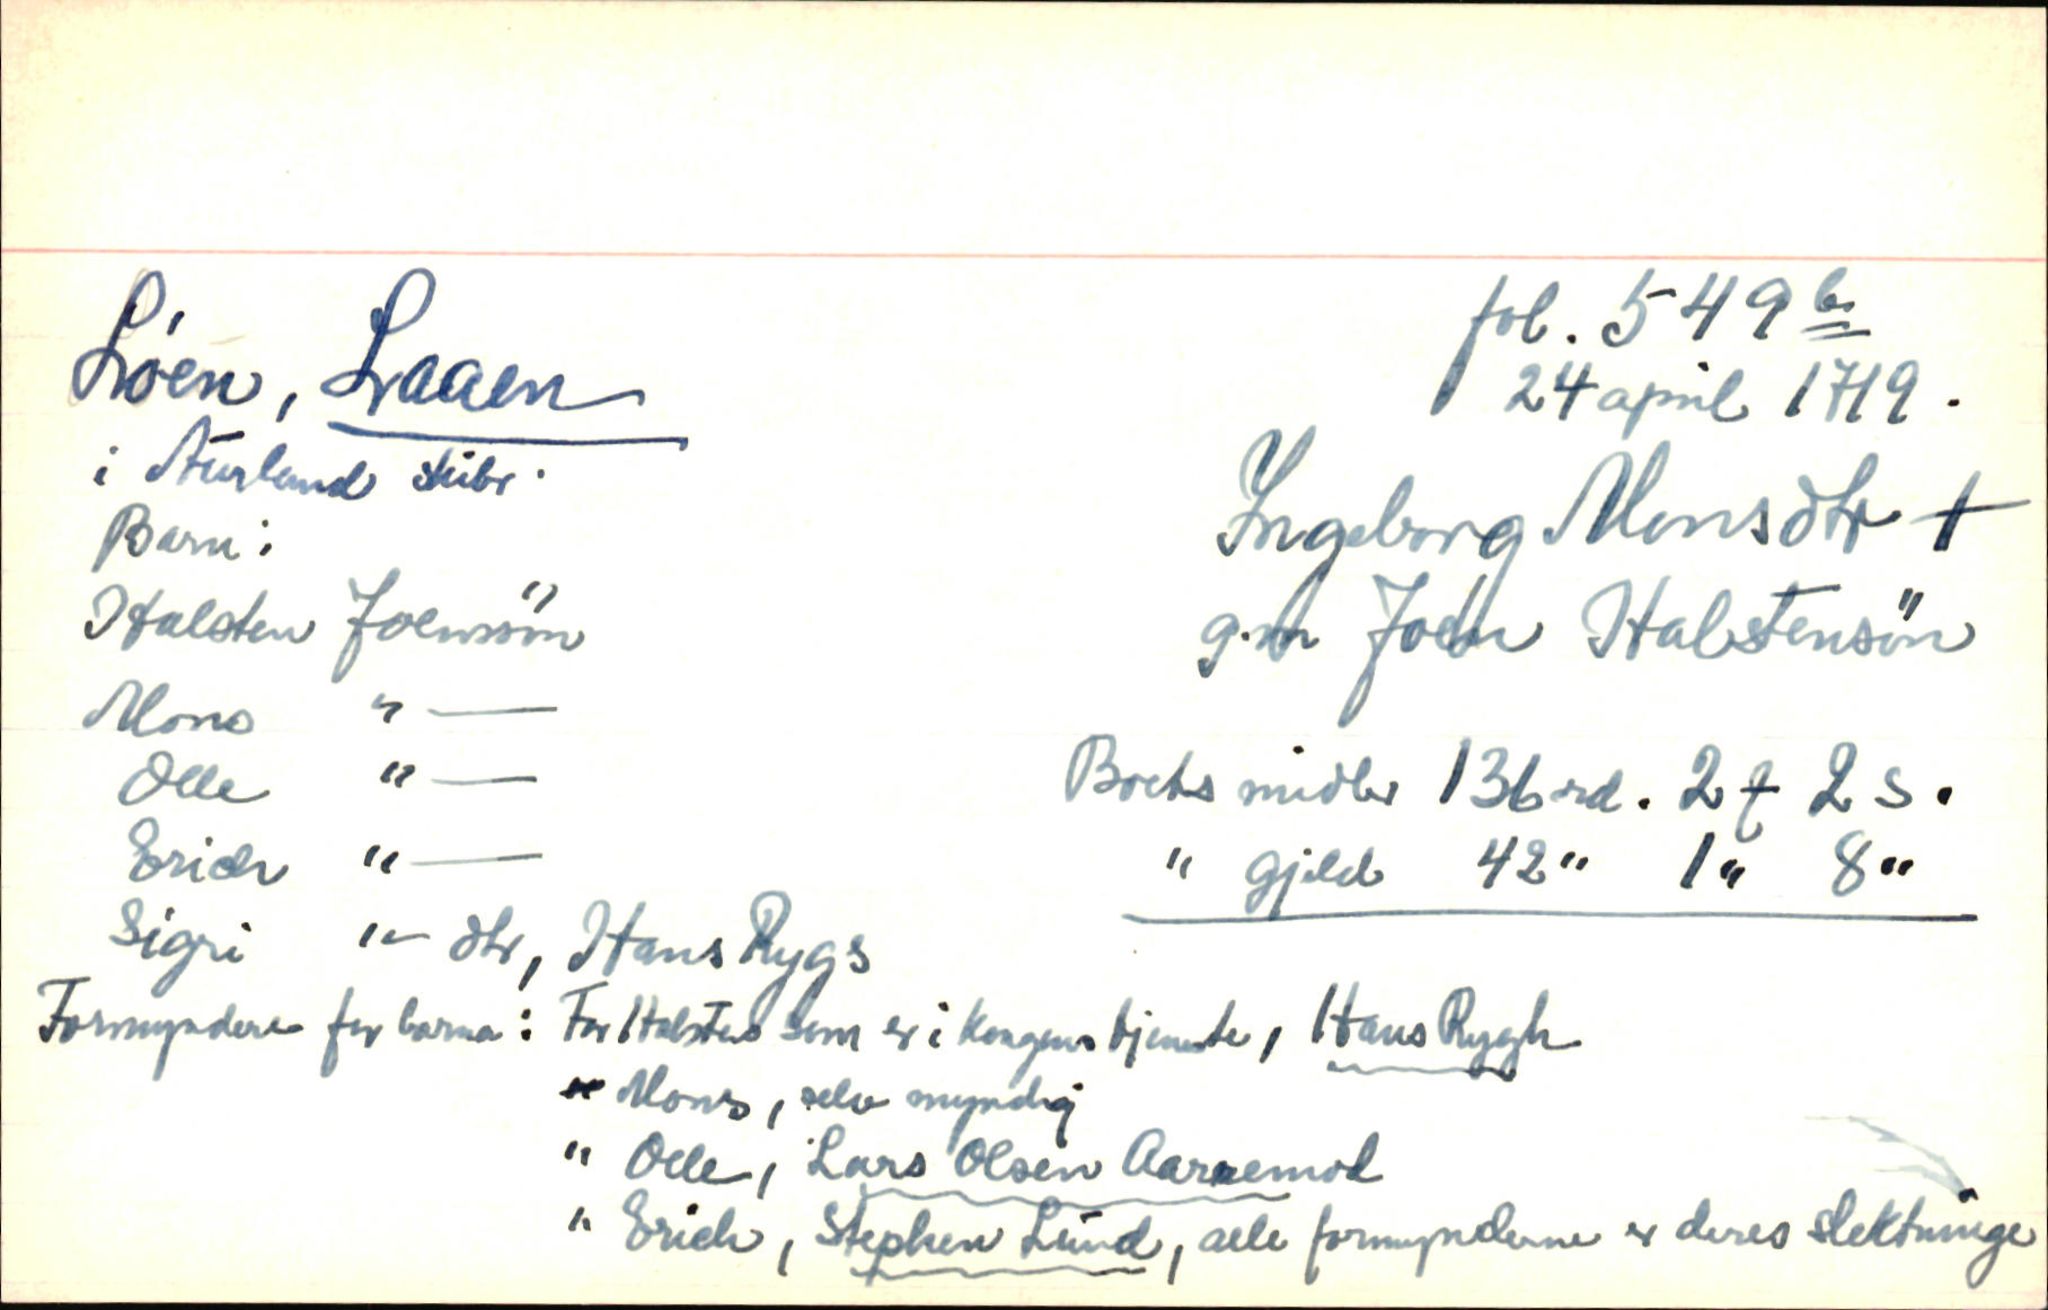 fol. 549 b
Löen, Laaen
24 april 1719.
i Aurland skibr.
Ingeborg Monsdtr †
Barn:
g.m Joen Halstensön
Halsten Joensön
Mons "—
Olle "—
Boets midler 136 rd. 2 f 2 s.
Erich "—
" gjeld 42 " 1 " 8 "
Sigri "— dtr, Hans Rygs
Formyndere for barna: For Halsten som er i kongens tjeneste, Hans Rygh
" Mons, selv myndig
" Olle, Lars Olsen Aaremod
" Erich, Stephen Lund, alle formynderne er deres slektninge